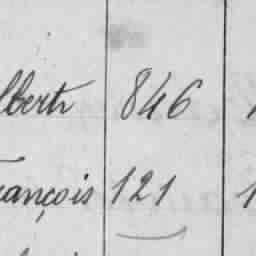 lbert 846
rançois 121